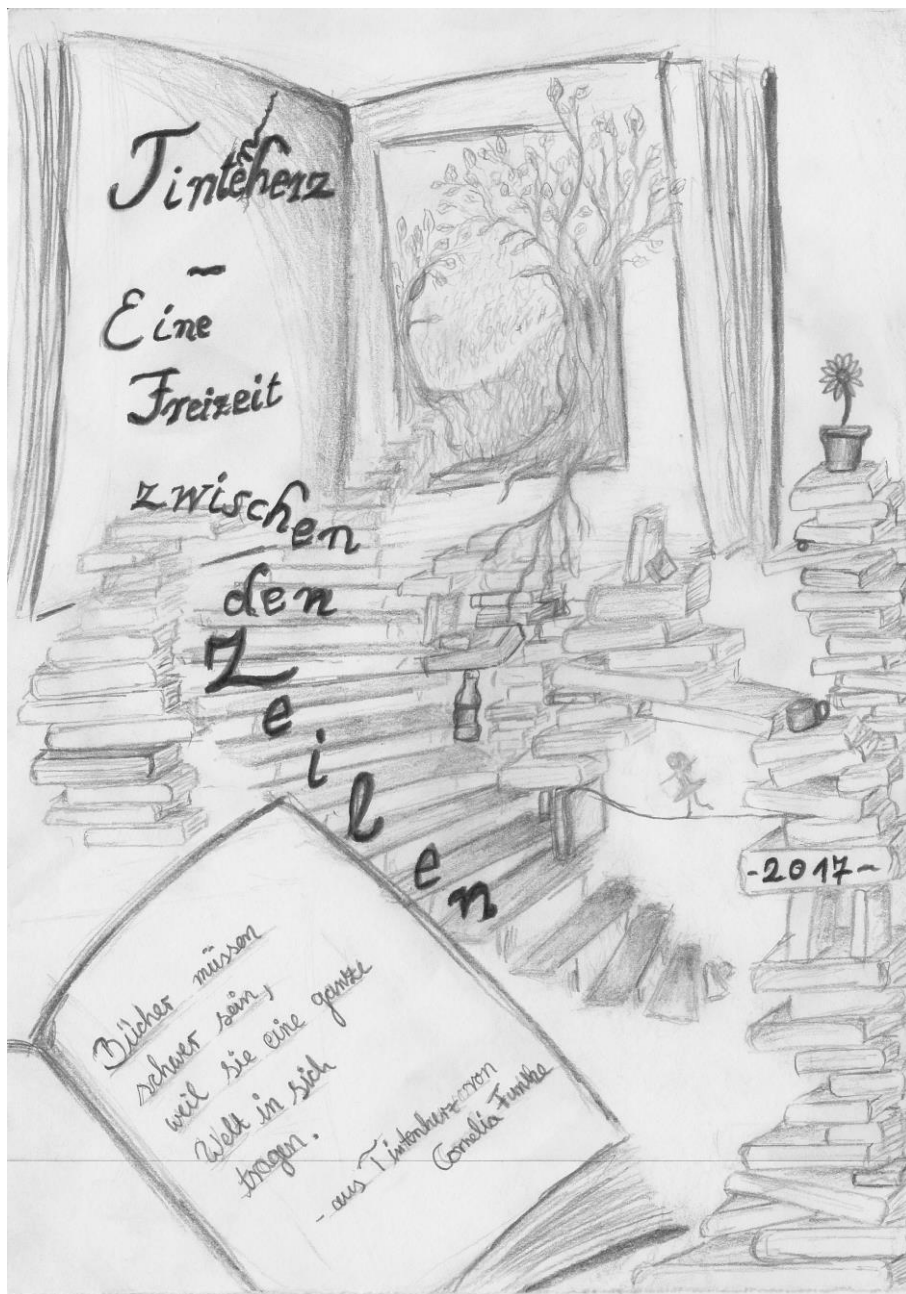 Tinteherz
~
Eine
Freizeit
zwischen
den
Zeilen
-2017-
Bücher müssen
schwer sein,
weil sie eine ganze
Welt in sich
tragen.
- aus Tintenherz von
Cornelia Funke